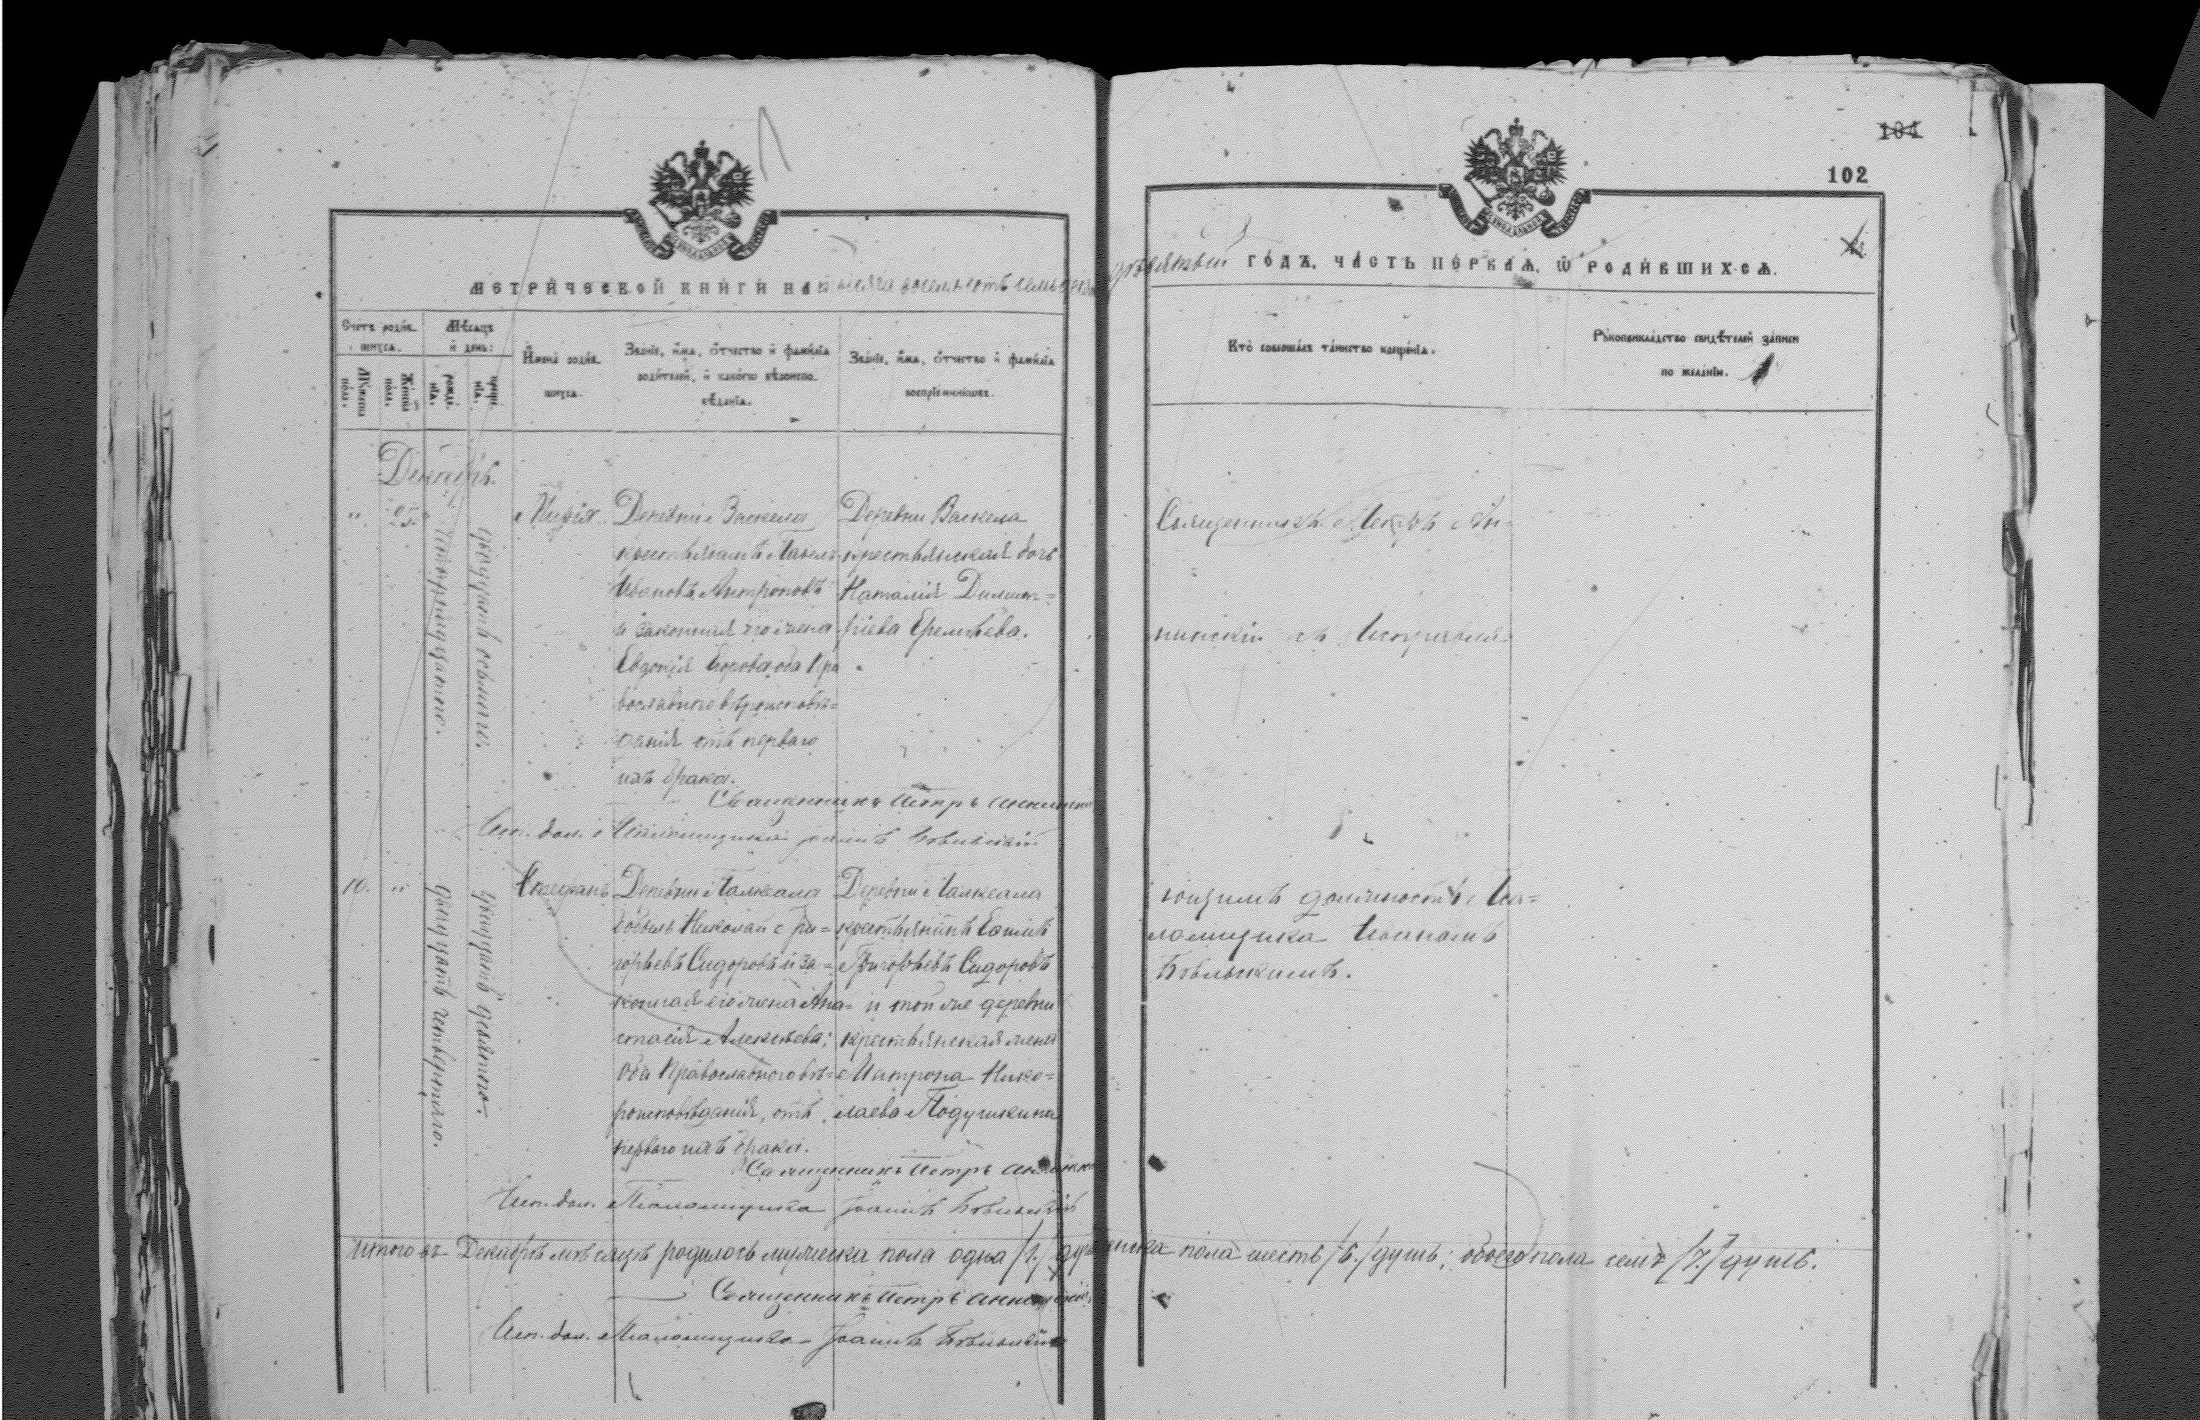 104
102
МЕТРИЧЕСКОЙ КНИГИ НА тысяча восемьсотъ семьдесятъ девятый ГОДЪ, ЧАСТЬ ПЕРВАЯ, Ѡ РОДИВШИХСЯ.
Счетъ родив-
шихся.
Мужеска
пола.
Женска
пола.
Мѣсяцъ
и день:
рожде-
нія.
креще-
нія.
Имена родив-
шихся.
Званіе, имя, отчество и фамилія
родителей, и какого вѣроиспо-
вѣданія.
Званіе, имя, отчество и фамилія
воспріемниковъ.
Кто совершалъ таинство крещенія.
Рукоприкладство свидѣтелей записи
по желанію.
Декабрь.
25.
двадцать осьмаго.
Деревни Васкела
крестьянинъ Павелъ
Ивановъ Антроповъ
и законная его жена
Евдокія оба Пра
вославнаго вѣроисповѣ-
данія отъ перваго
ихъ брака.
Деревни Васкела
крестьянская дочь
Наталія Димит-
ріева Еремѣева.
Священникъ Петръ Ан-
нинскій съ Исправля-
Священникъ Петръ Аннинскій
Исп. дол. Псаломщика Іоаннъ Бѣльскій
10.
двадцать четвертаго.
двадцать девятаго.
Стефанъ
Деревни Палкеала
бобыль Николай Гри-
горьевъ Сидоровъ и за-
конная его жена Ана-
стасія Алексѣева;
оба Православнаго вѣ-
роисповѣданія, отъ
перваго ихъ брака.
Деревни Палкеала
крестьянинъ
Григорьевъ Сидоровъ
и той же деревни
крестьянская жена
Матрона Нико-
лаева Подушкина
ющимъ должность Пса-
ломщика Іоанномъ
Бѣльскимъ.
Священникъ Петръ Аннинскій
Исп. дол. Псаломщика Іоаннъ Бѣльскій
Итого въ Декабрѣ мѣсяцѣ родилось мужеска пола одна /1./ женска пола шесть /6./ душъ; обоего пола семь /7./ душъ.
Священникъ Петръ Аннинскій
Исп. дол. Псаломщика Іоаннъ Бѣльскій